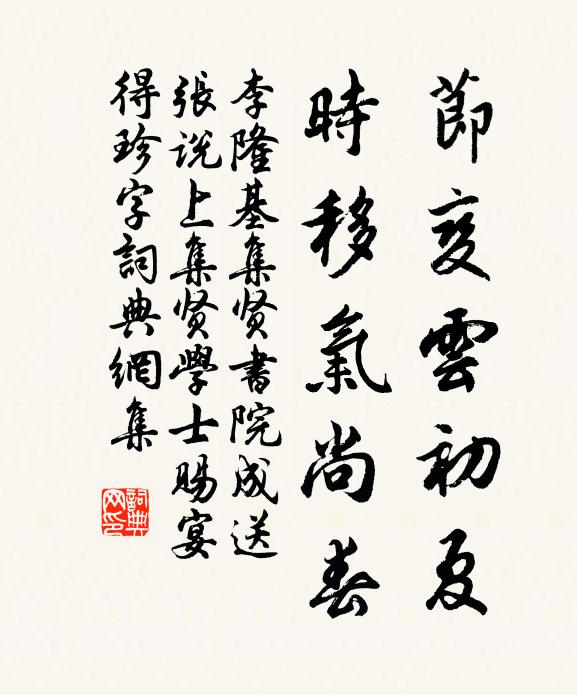 節變雲初夏
時移氣尚春
李隆基集贤書院成送
張说上集贤學士賜宴
得珍字詞典網集
詞典网印